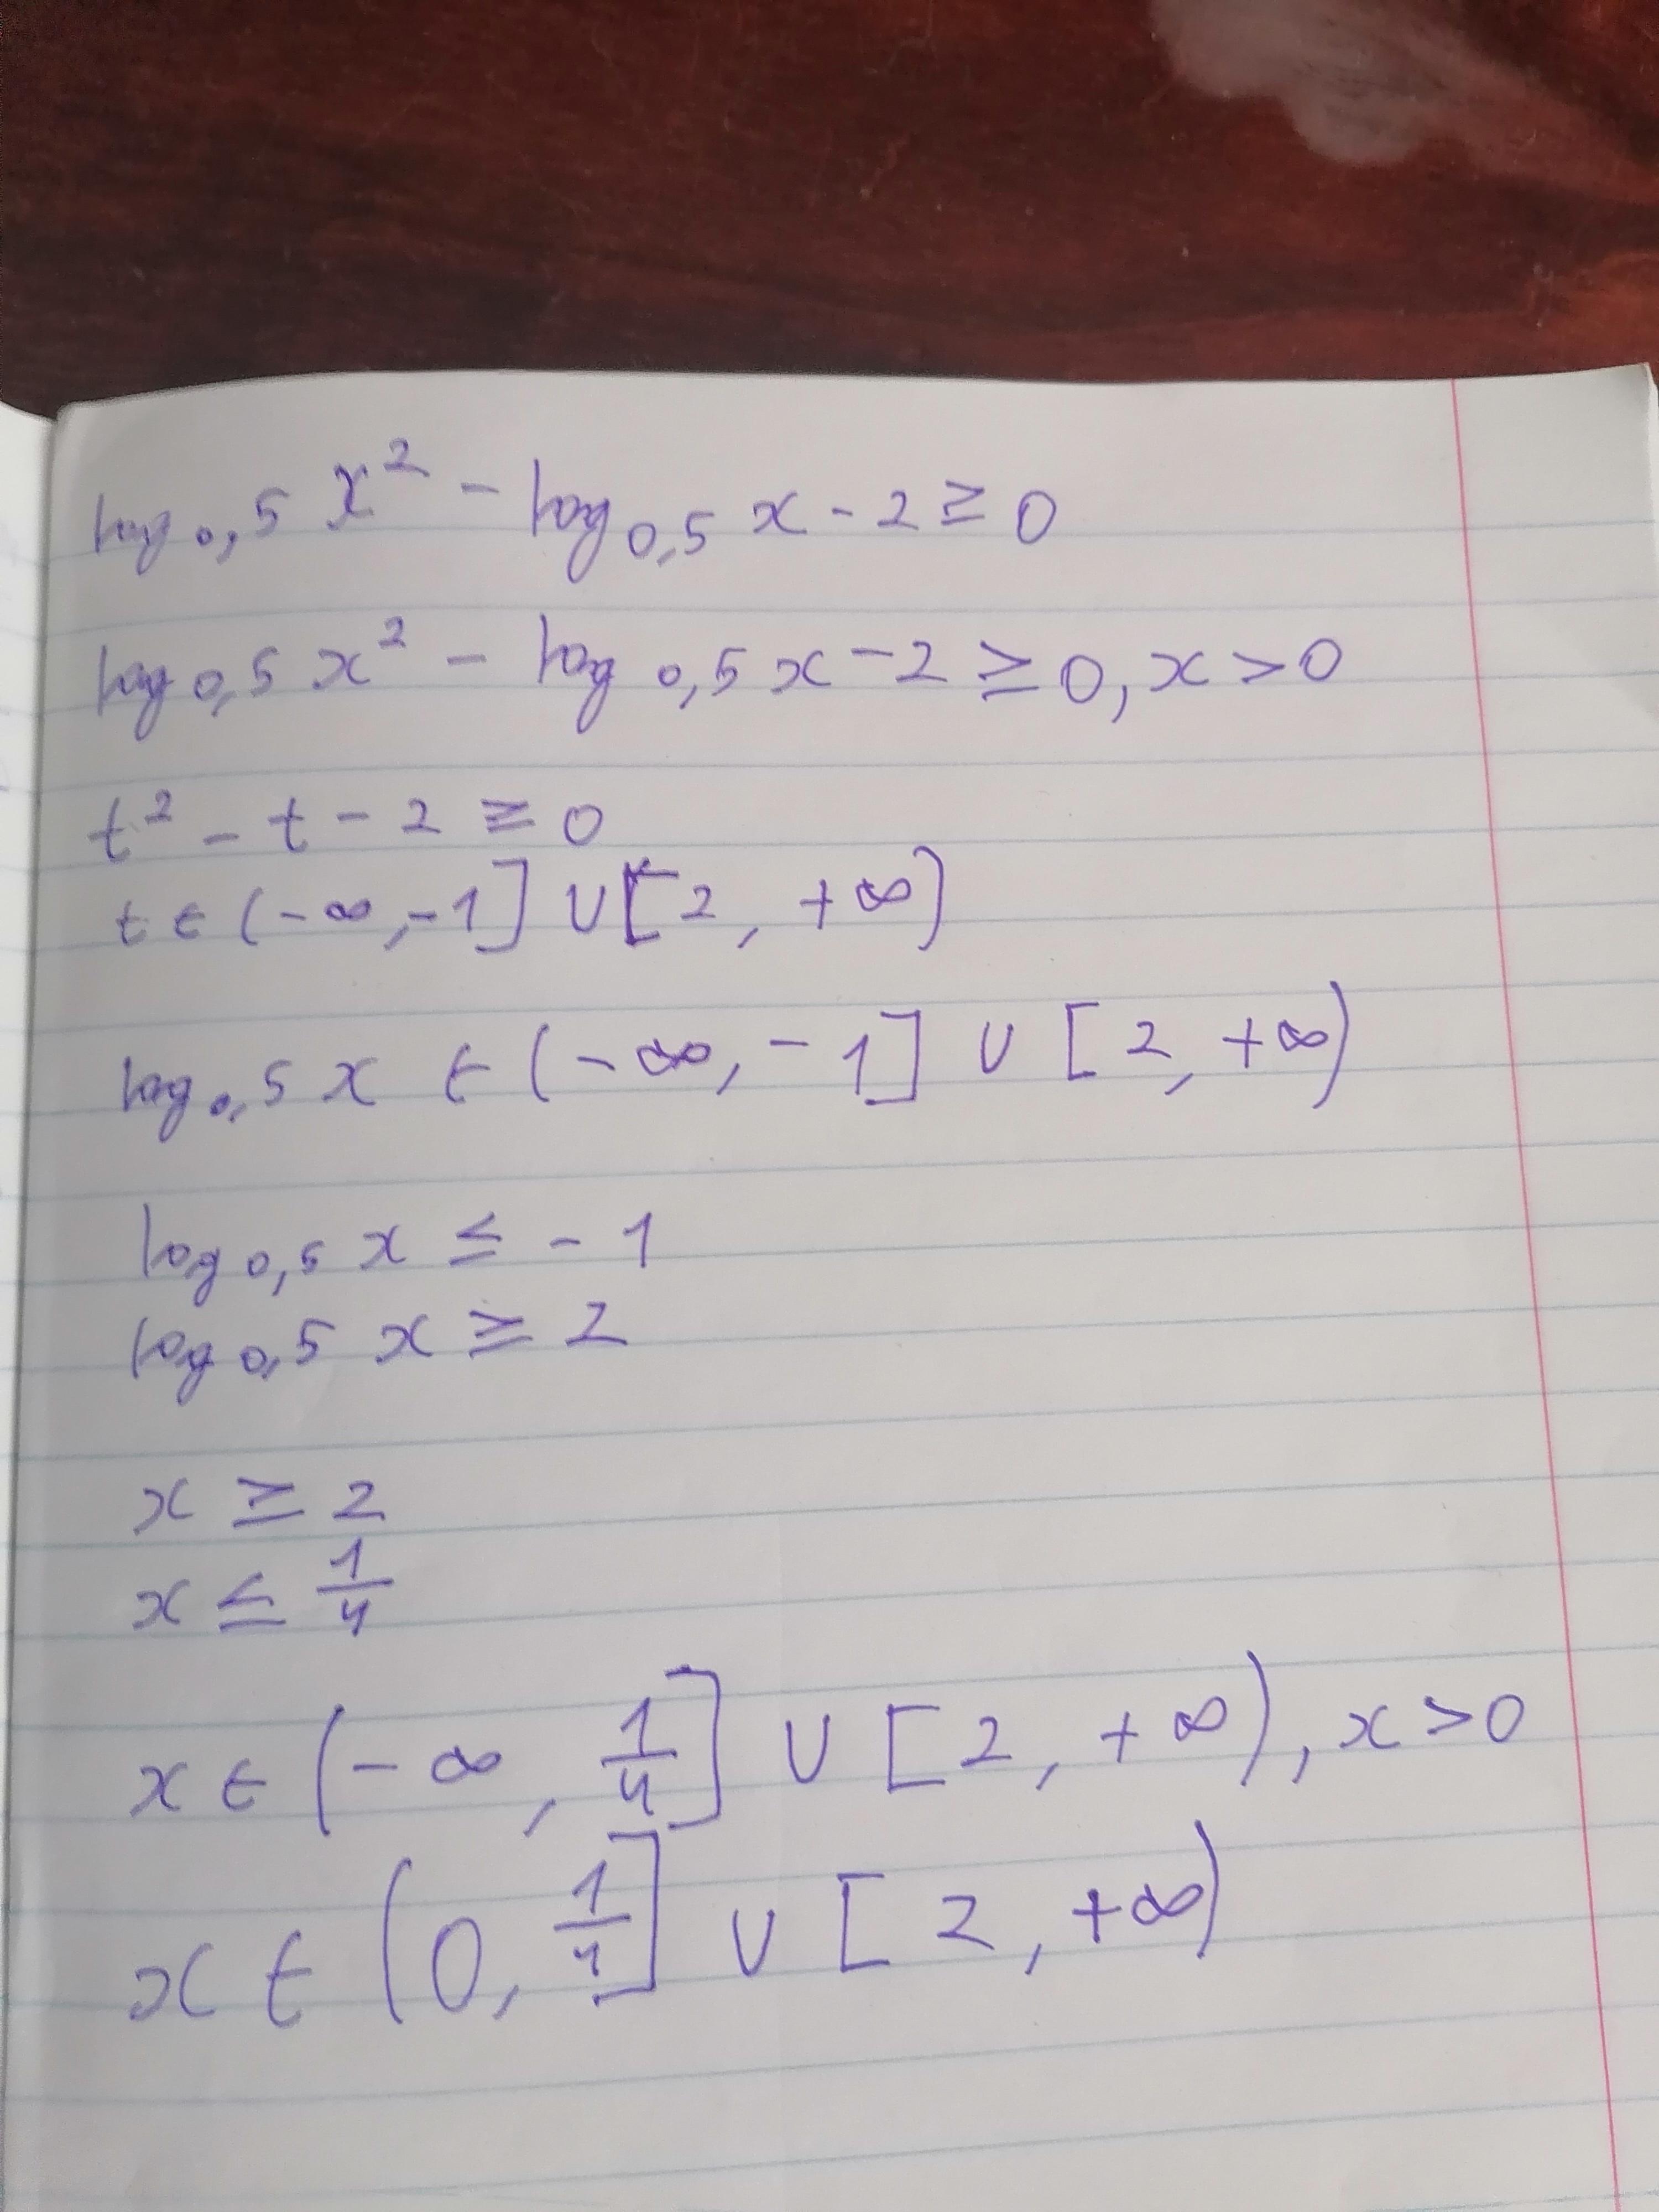 log₀,₅ x² - log₀,₅ x - 2 ≥ 0
log₀,₅ x² - log₀,₅ x - 2 ≥ 0, x > 0
t² - t - 2 ≥ 0
t ∈ (-∞, -1] ∪ [2, +∞)
log₀,₅ x ∈ (-∞, -1] ∪ [2, +∞)
log₀,₅ x ≤ -1
log₀,₅ x ≥ 2
x ≥ 2
x ≤ 1/4
x ∈ (-∞, 1/4] ∪ [2, +∞), x > 0
x ∈ (0, 1/4] ∪ [2, +∞)